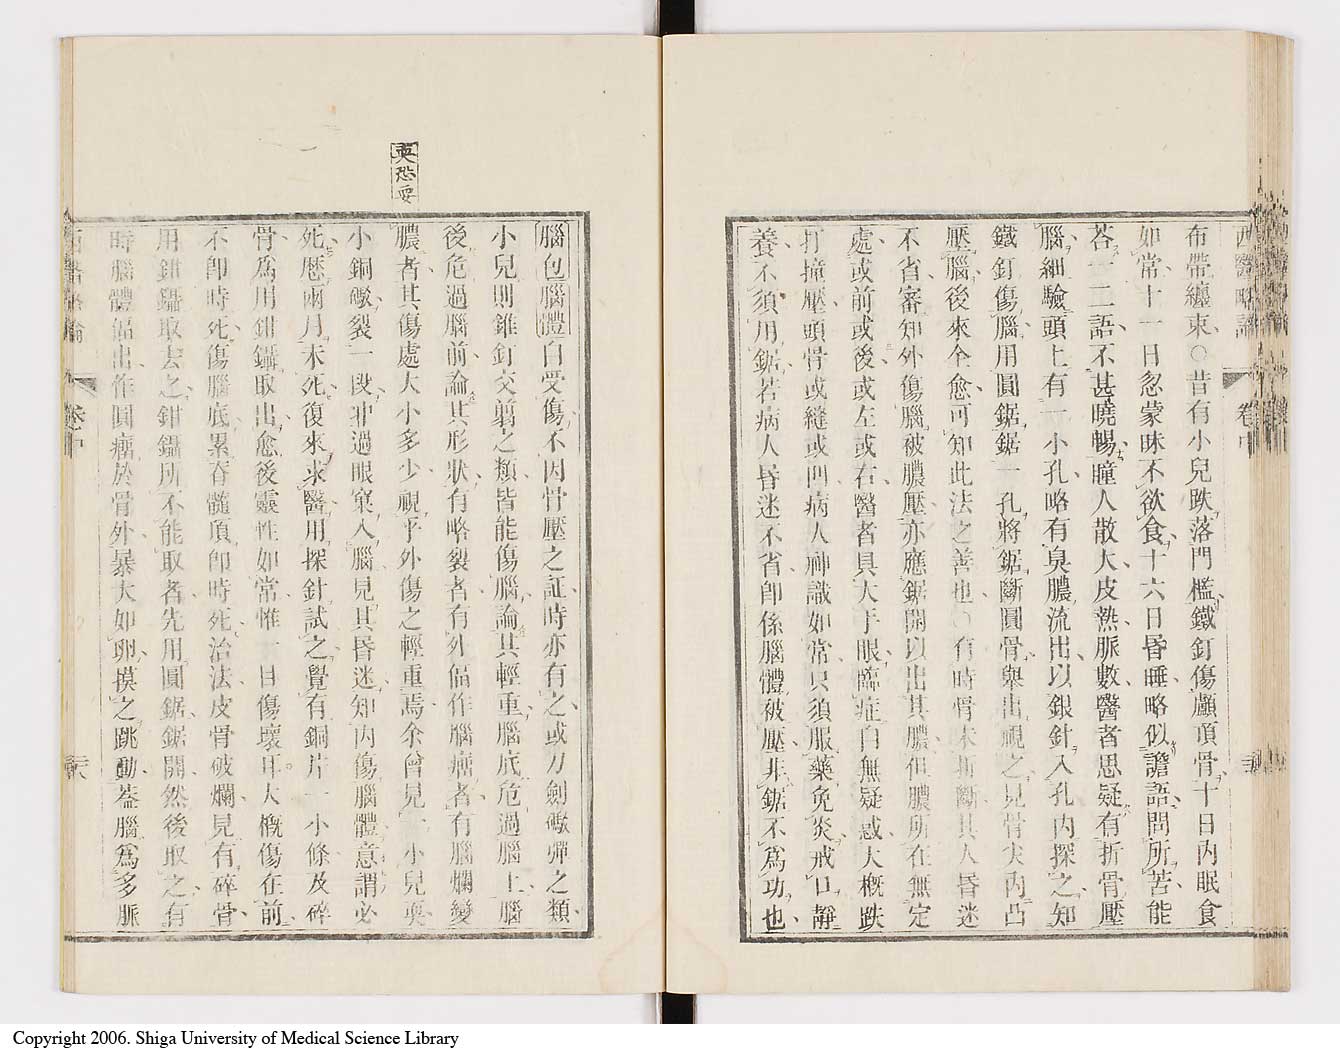 西醫略論
卷中
布帶纏束○昔有小兒跌落門檻鐵釘傷顱頂骨十日內眠食
如常十一日忽蒙昧不欲食十六日昏睡略似譫語問所苦能
荅一二語不甚曉暢瞳人散大皮熱脈數醫者思疑有折骨壓
腦細驗頭上有一小孔略有臭膿流出以銀針入孔內探之知
鐵釘傷腦用圓鋸鋸一孔將鋸斷圓骨舉出視之見骨尖內凸
壓腦後來全愈可知此法之善也○有時骨未折斷其人昏迷
不省審知外傷腦被膿壓亦應鋸開以出其膿但膿所在無定
處或前或後或左或右醫者具大手眼臨症自無疑惑大概跌
打撞壓頭骨或縫或凹病人神識如常只須服藥免炎戒口靜
養不須用鋸若病人昏迷不省卽係腦體被壓非鋸不爲功也
腦包腦體自受傷不因骨壓之証時亦有之或刀劍礮彈之類
小兒則錐釘交剪之類皆能傷腦論其輕重腦底危過腦上腦
後危過腦前論其形狀有略裂者有外傴作腦瘤者有腦爛變
膿者其傷處大小多少視乎外傷之輕重焉余曾見一小兒耎
小銅礮裂一段冲過眼窠入腦見其昏迷知內傷腦體意謂必
死歷兩月未死復來求醫用探針試之覺有銅片一小條及碎
骨爲用鉗鑷取出愈後靈性如常惟一目傷壞耳大概傷在前
不卽時死傷腦底累脊髓頂卽時死治法皮骨破爛見有碎骨
用鉗鑷取去之鉗鑷所不能取者先用圓鋸鋸開然後取之有
時腦體傴出作圓瘤於骨外暴大如卵摸之跳動葢腦爲多脈
卷中
耎恐耍
Copyright 2006. Shiga University of Medical Science Library